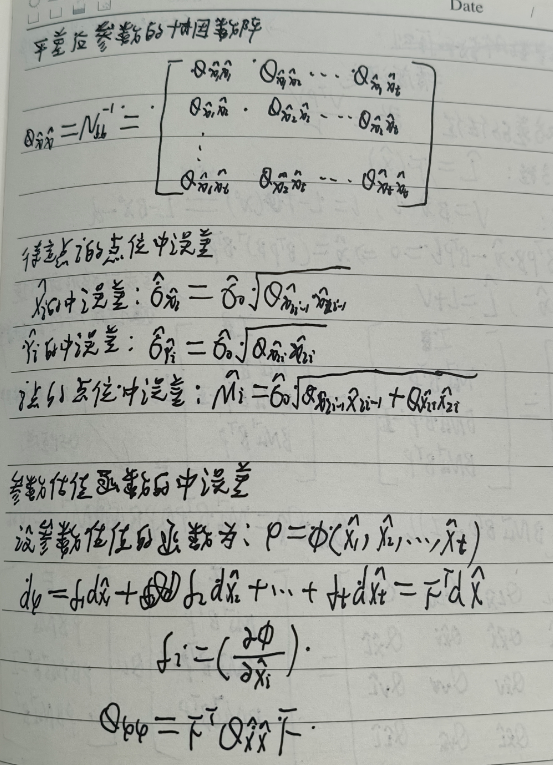 Date
平差后参数的协因数阵
Q_{x̂x̂} = N_{bb}^{-1} = [ Q_{x̂₁x̂₁} Q_{x̂₁x̂₂} ⋯ Q_{x̂₁x̂t}
Q_{x̂₁x̂₂} Q_{x̂₂x̂₂} ⋯ Q_{x̂₂x̂t}
⋮
Q_{x̂₁x̂t} Q_{x̂₂x̂t} ⋯ Q_{x̂tx̂t} ]
待定点i的点位中误差
X̂i的中误差: σ̂_{x̂i} = σ̂₀√Q_{x̂2i-1·x̂2i-1}
Ŷi的中误差: σ̂_{Ŷi} = σ̂₀√Q_{x̂2i·x̂2i}
i点的点位中误差: M̂i = σ̂₀√Q_{x̂2i-1x̂2i-1} + Q_{x̂2ix̂2i}
参数估值函数的中误差
设参数估值的函数为: φ = Φ(x̂₁, x̂₂, ..., x̂t)
dφ = f₁dx̂₁ + f₂dx̂₂ + ⋯ + ftdx̂t = Fᵀdx̂
fi = (∂Φ/∂x̂i).
Qφφ = FᵀQ_{x̂x̂}F.